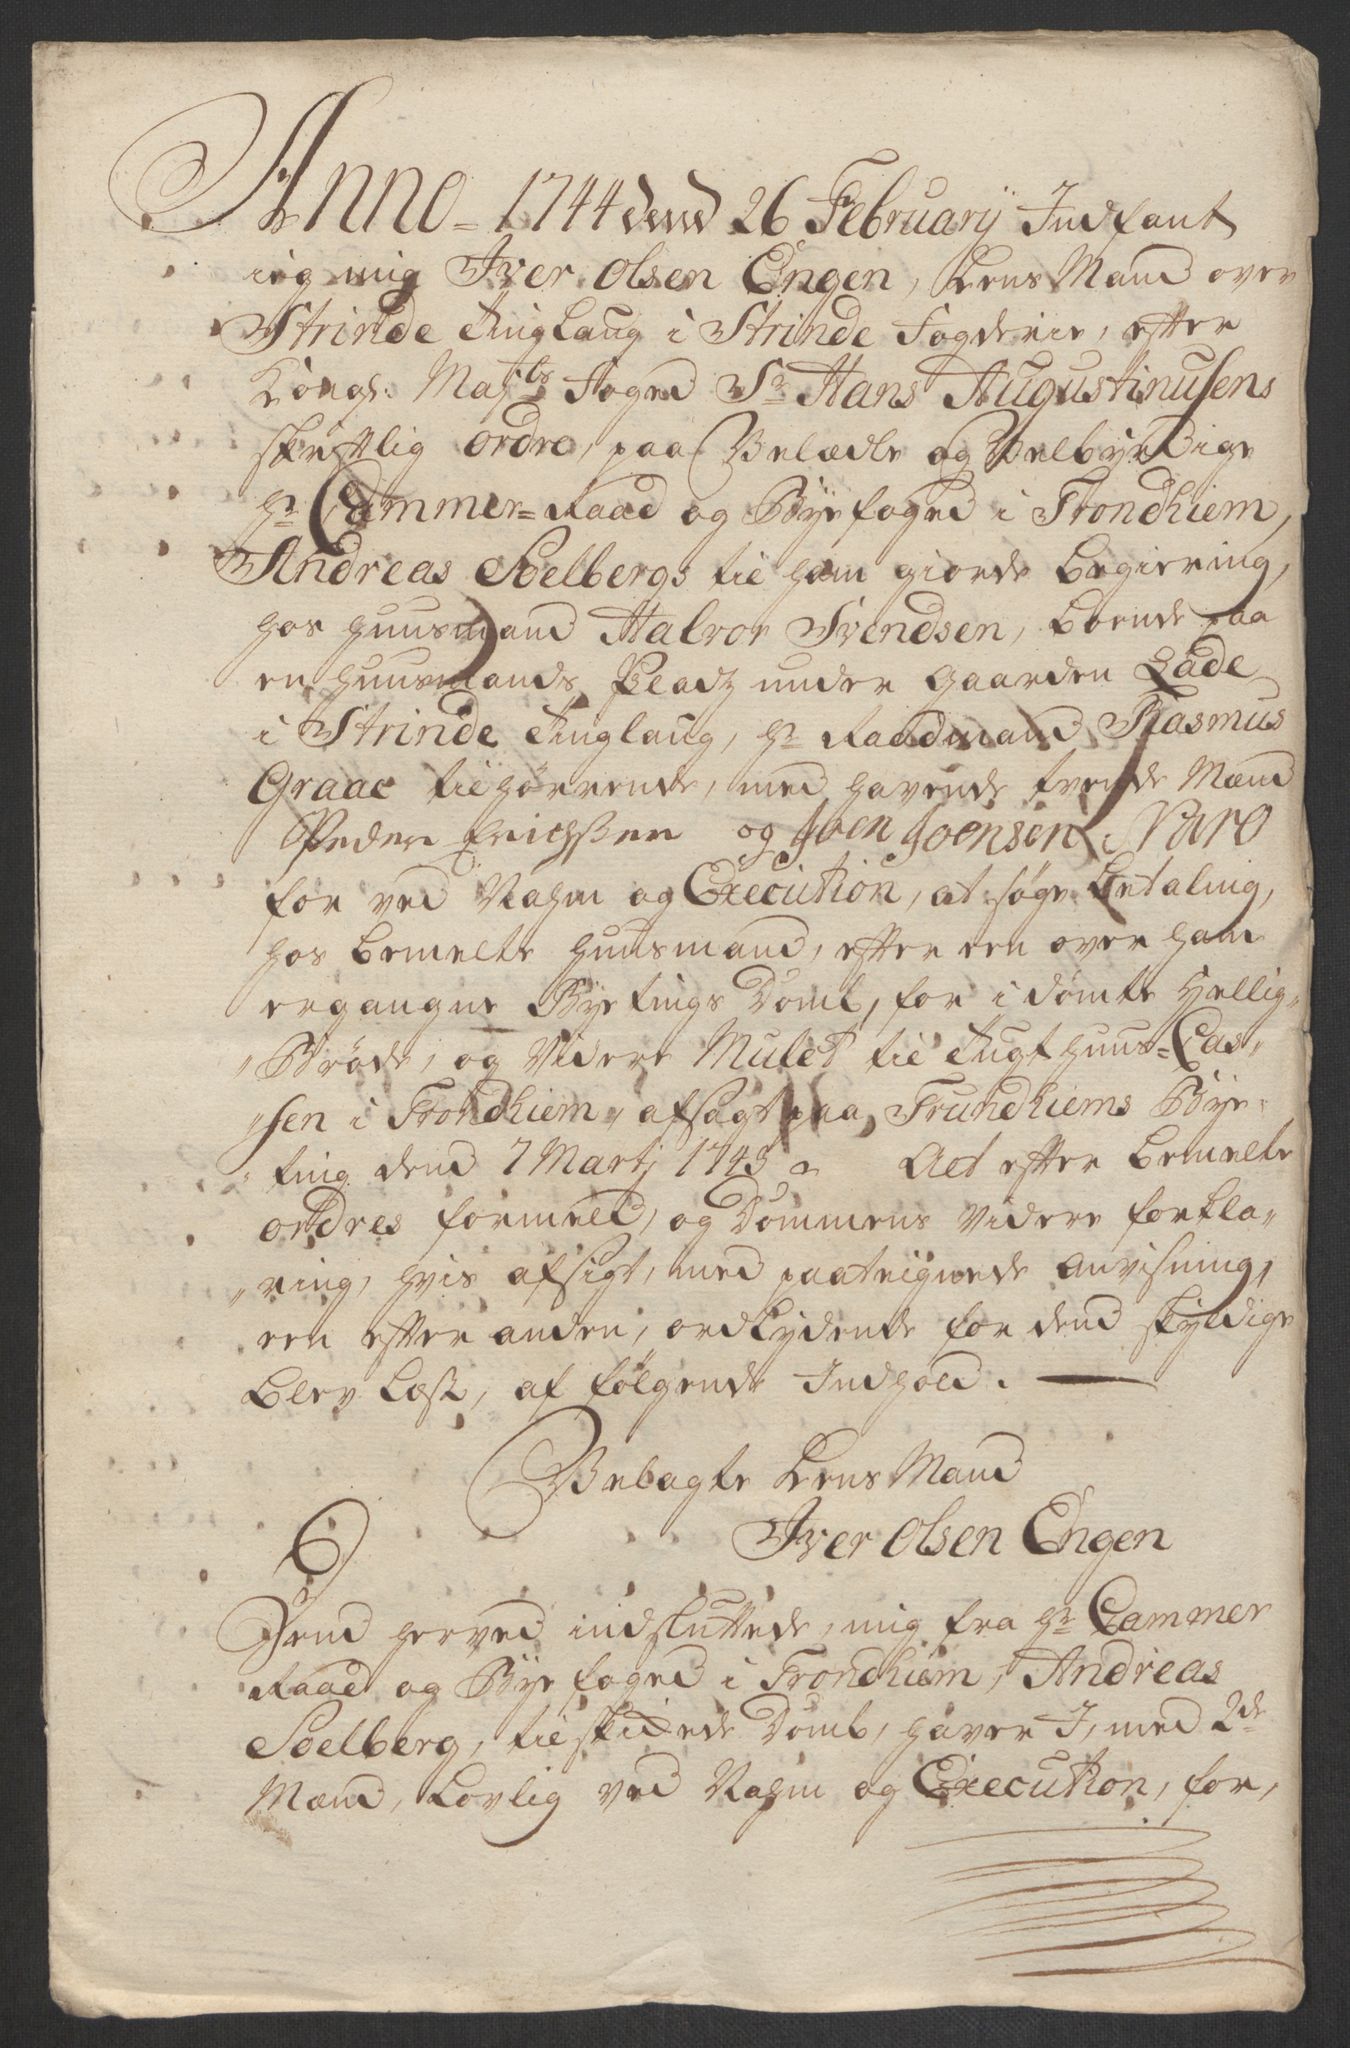 Anno 1744 dend 26 February Indfant
ieg mig Iver Olsen Engen, LensMand over
Strinde Tinglaug i Strinde Fogderie, efter
Kongl: Maj:ts Foged Sr Hans Augustinusens
skriftlig ordre, paa Velædle og Velbyrdige
Hr Cammer-Raad og Byefoged i Trondhiem,
Andreas Soelbergs til ham giorde begiering,
hos huusmand Halvor Svendsen, boende paa
en huusmands Pladz under gaarden Lade
i Strinde Tinglaug, Hr Raadmand Rasmus
Graae tilhørende, med havende tvende Mænd
Peder Erichsen og Joen Joensen Varo
for ved Nahm og Execution, at søge betaling,
hos bemelte huusmand, efter een over ham
ergangne Byetings Domb, for idømte Hellig-
"Brøde, og videre Mulct til Tugthuus-Cas-
"sen i Trondhiem, afsagt paa Trundhiems Bye-
"ting dend 7 Martj 1743. Alt efter bemelte
ordres formeld, og Dommens videre forkla-
"ring, hvis afsigt, med paateignede anvisning,
een efter anden, ordlydende for dend skyldige
blev læst, af følgende Indhold. —
Velagte LensMand
Iver Olsen Engen
Dend herved indsluttede, mig fra Hr Cammer
Raad og Byefoged i Trondhiem, Andreas
Soelberg, tilskikede Domb, haver I, med 2de
Mænd, Lovlig ved Nahm og Execution, for,